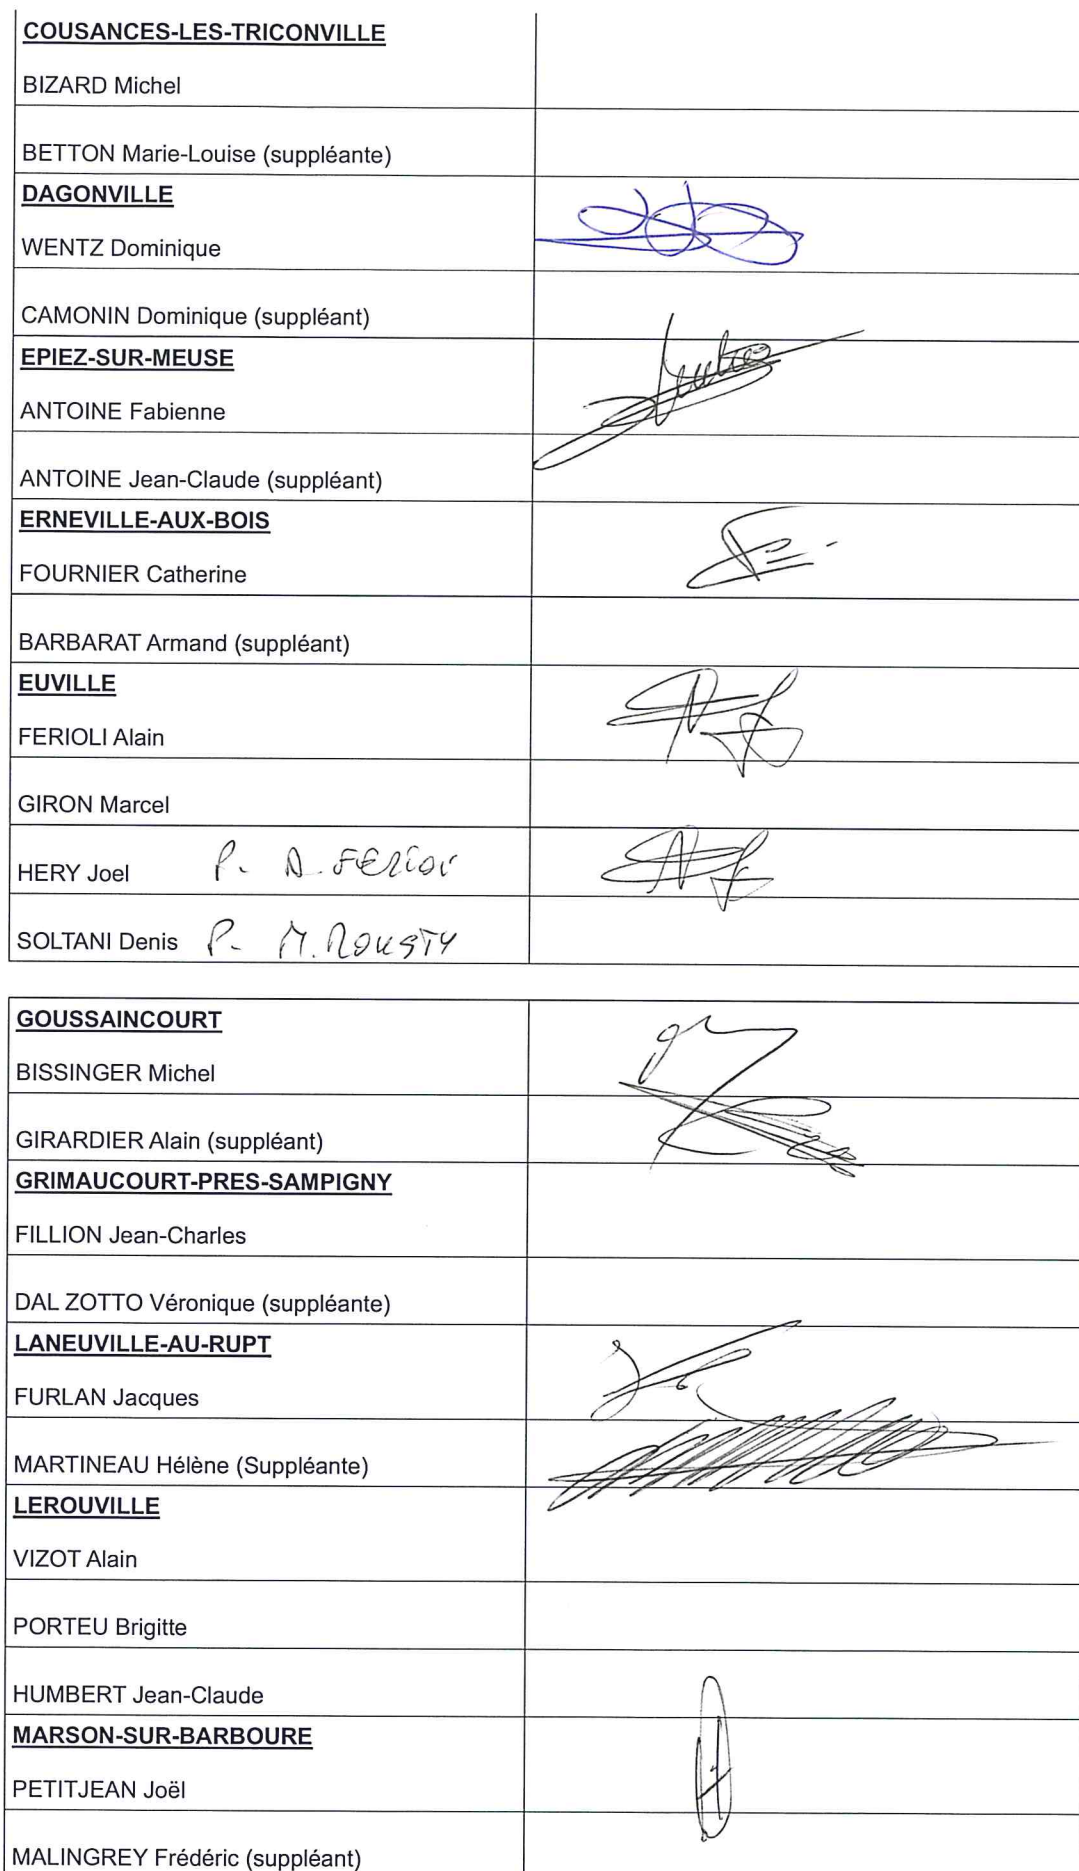 COUSANCES-LES-TRICONVILLE
BIZARD Michel
BETTON Marie-Louise (suppléante)
DAGONVILLE
WENTZ Dominique
CAMONIN Dominique (suppléant)
EPIEZ-SUR-MEUSE
ANTOINE Fabienne
ANTOINE Jean-Claude (suppléant)
ERNEVILLE-AUX-BOIS
FOURNIER Catherine
BARBARAT Armand (suppléant)
EUVILLE
FERIOLI Alain
GIRON Marcel
HERY Joel P. A. FERIOLI
SOLTANI Denis P. M. ROUSTY
GOUSSAINCOURT
BISSINGER Michel
GIRARDIER Alain (suppléant)
GRIMAUCOURT-PRES-SAMPIGNY
FILLION Jean-Charles
DAL ZOTTO Véronique (suppléante)
LANEUVILLE-AU-RUPT
FURLAN Jacques
MARTINEAU Hélène (Suppléante)
LEROUVILLE
VIZOT Alain
PORTEU Brigitte
HUMBERT Jean-Claude
MARSON-SUR-BARBOURE
PETITJEAN Joël
MALINGREY Frédéric (suppléant)